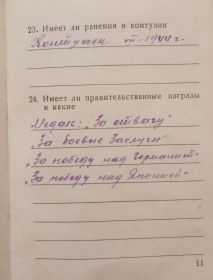 23. Имеет ли ранения и контузии
Контужен 1944 г.
24. Имеет ли правительственные награды
и какие
Медаль: „За отвагу"
„За боевые Заслуги"
„За победу над Германией"
„За победу над Японией"
11